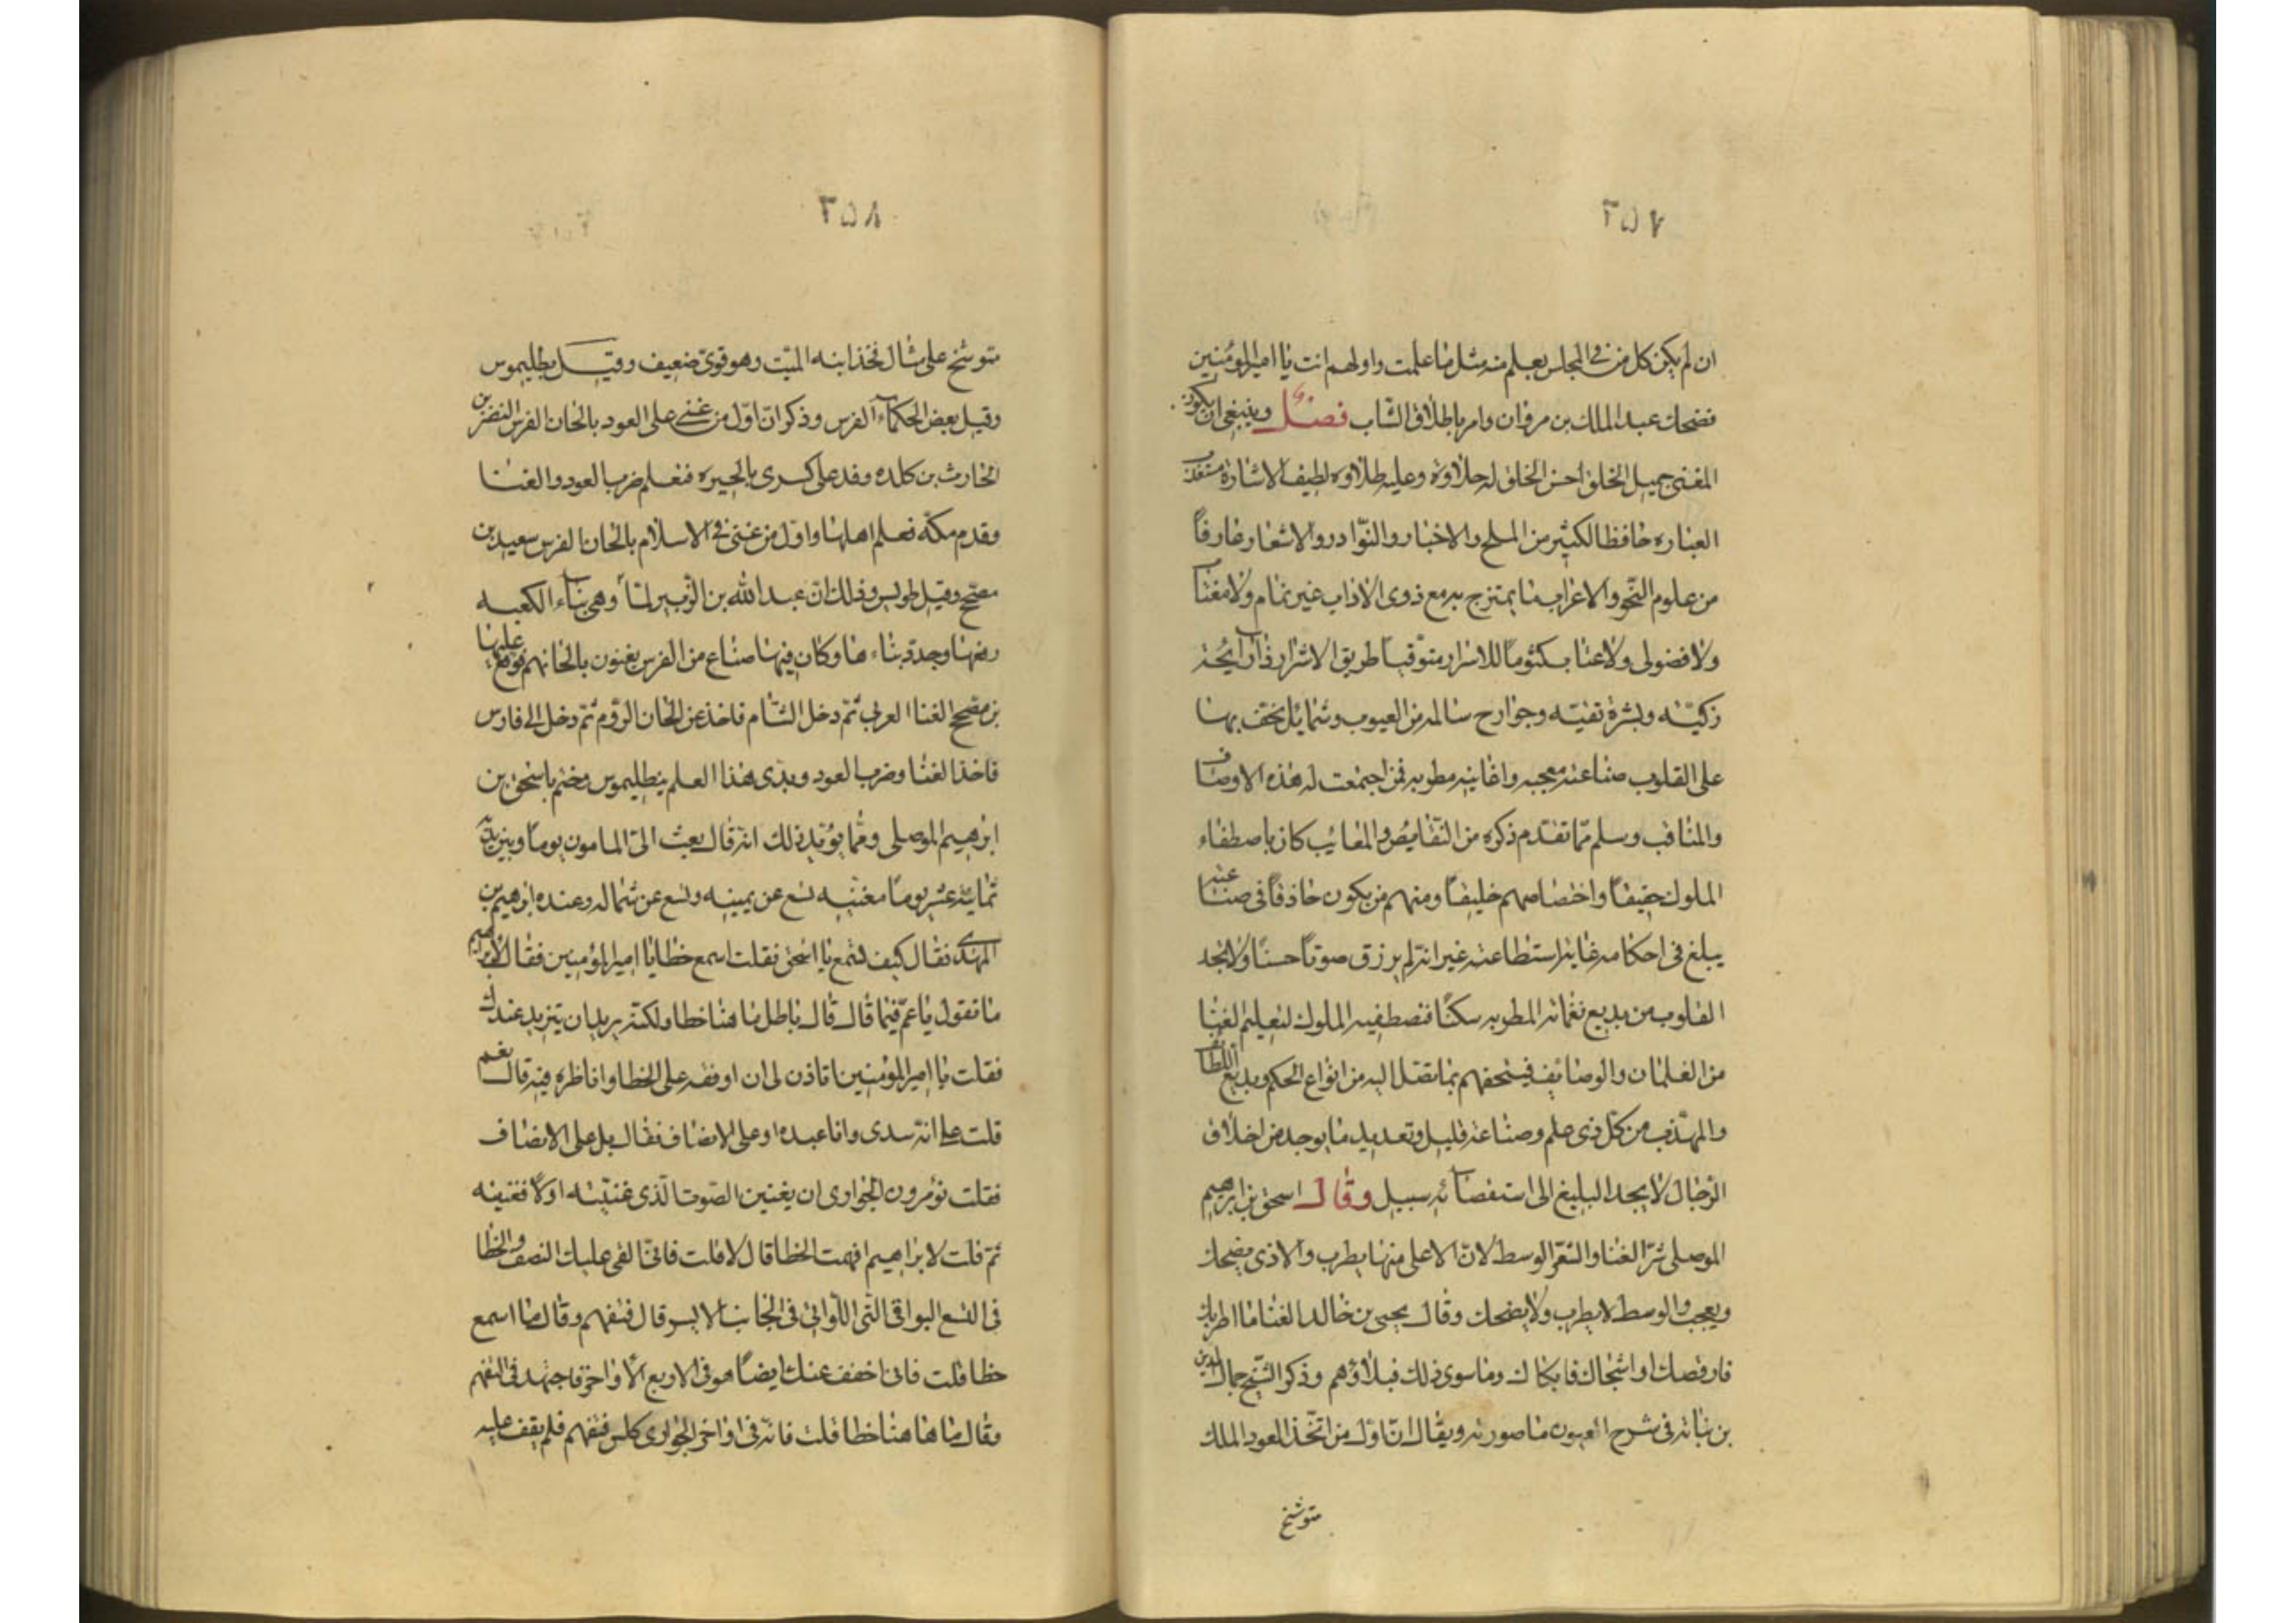 ٢٥٧
ان لم يكن كل من فى المجلس يعلم منه مثل ما علمت واولهم انت يا امير المؤمنين
فضحك عبد الملك بن مروان وامر باطلاق الشاب فصل وينبغى ان يكون
المغنى جميل الخلق احسن الخلق له حلاوه وعليه طلاوه لطيف الاشارة
العباره حافظا لكثير من الملح والاخبار والنوادر والاشعار عارفاً
من علوم النحو والاعراب ما يمتزج به مع ذوى الاداب غير نمام ولا مغتاب
ولا فضولى ولا عتاب كتوماً للاسرار متوقياً طريق الاشرار
زكيّه وبشرة نقيّه وجوارح سالمه من العيوب وشمايل يخف بها
على القلوب صناعته معجبه واغانيه مطربه فمن اجتمعت له هذه الاوصاف
والمناقب وسلم ممّا تقدم ذكره من النقايص والمعايب كان باصطفاء
الملوك حقيقاً واختصاصهم خليقاً ومنهم من يكون حاذقاً فى صناعته
يبلغ فى احكامه غاية استطاعته غير انه لم يرزق صوتاً حسناً ولا تجد
القلوب من بديع نغماته المطربه سكناً فتصطفيه الملوك لتعليم الغنا
من الغلمان والوصائف فيتحفهم بما تصل اليه من انواع الحكم وبديع اللطائف
والمهذب من كل ذى علم وصناعة قليل وتعديد ما يوجد من اخلاق
الرجال لا يجد البليغ الى استقصائه سبيل وقال اسحق بن ابرهيم
الموصلى شر الغنا والشعر الوسط لان الاعلى منها يطرب والادنى يضحك
ويعجب والوسط لا يطرب ولا يضحك وقال يحيى بن خالد الغنا ما اطربك
فارقصك او اشجاك فابكاك وما سوى ذلك فبلاؤهم وذكر الشيخ جمال الدين
بن نباته فى شرح العيون ما صورته ويقال ان اول من اتخذ العود الملك
متوشخ
٢٥٨
متوشخ على مثال فخذ ابنه الميّت وهو قوىّ ضعيف وقيل بطليموس
وقيل بعض الحكماء الفرس وذكر ان اول من غنى على العود بالحان الفرس النضر بن
الحارث بن كلده وفد على كسرى بالحيره فتعلم ضرب العود والغنا
وقدم مكة فعلم اهلها واول من غنى فى الاسلام بالحان الفرس سعيد بن
مصجح وقيل طويس وذلك ان عبد الله بن الزبير لما وهى بناء الكعبه
رفعها وجدد بناءها وكان فيها صناع من الفرس يغنون بالحانهم فوقع عليها
بن مصجح الغنا العربى ثم دخل الشام فاخذ عن الحان الروم ثم دخل الى فارس
فاخذ الغنا وضرب العود وبدى هذا العلم ببطليموس وختم باسحق بن
ابرهيم الموصلى ومما يؤيد ذلك انه قال بعث الىّ المامون يوماً وبين يديه
ثمانية عشر يوماً مغنيه تسع عن يمينه وتسع عن شماله وعنده ابرهيم بن
المهدى فقال كيف تسمع يا اسحق فقلت اسمع خطا يا امير المؤمنين فقال لابراهيم
ما تقول يا عم فيما قال قال باطل ما هنا خطا ولكنه يريد ان يتزيد عندك
فقلت يا امير المؤمنين اتاذن لى ان اوقفه على الخطا واناظره فيه قال نعم
قلت على انه سيدى وانا عبده او على الانصاف فقال بل على الانصاف
فقلت تؤمرون الجوارى ان يغنين الصوت الذى غنيّته اولا فغنيّنه
ثم قلت لابراهيم افهمت الخطا قال لا قلت فانى القى عليك النصف والخطا
فى التسع البواقى التى اللواتى فى الجانب الايسر قال فتفهم وقال ما اسمع
خطا قلت فانى اخفف عنك ايضاً هو فى الاربع الاواخر فاجتهد فى التفهم
وقال ما ها هنا خطا قلت فانه فى اواخر الجوارى كلهن فتفهم فلم يقف عليه